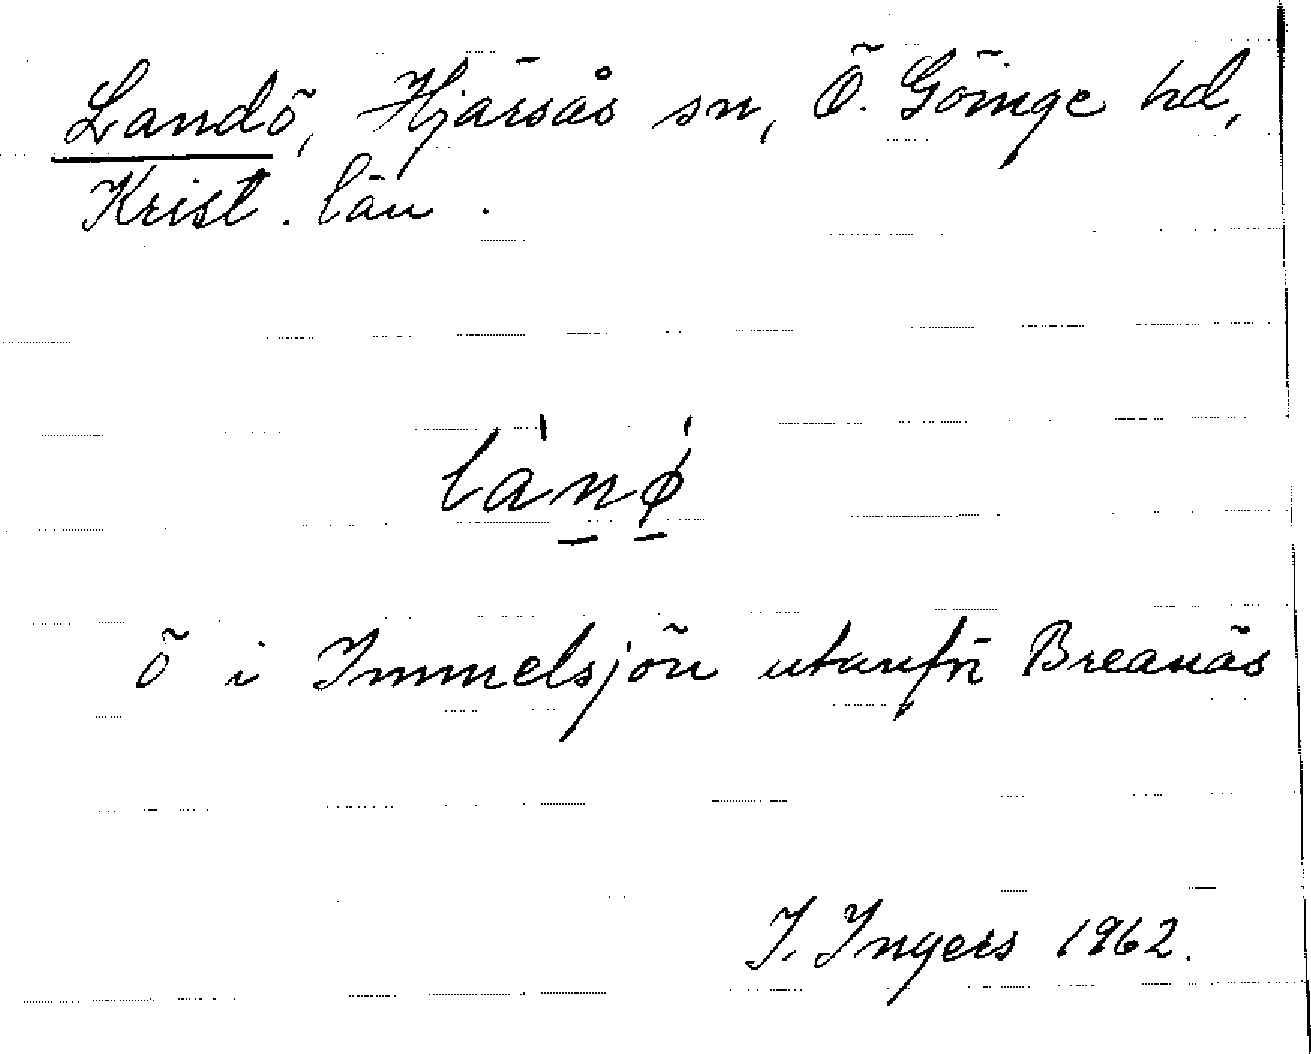 Landö, Hjärsås sn, Ö. Göinge hd,
Krist. län.
la'nø'
ö i Immelsjön utanför Breanäs
I. Ingers 1962.